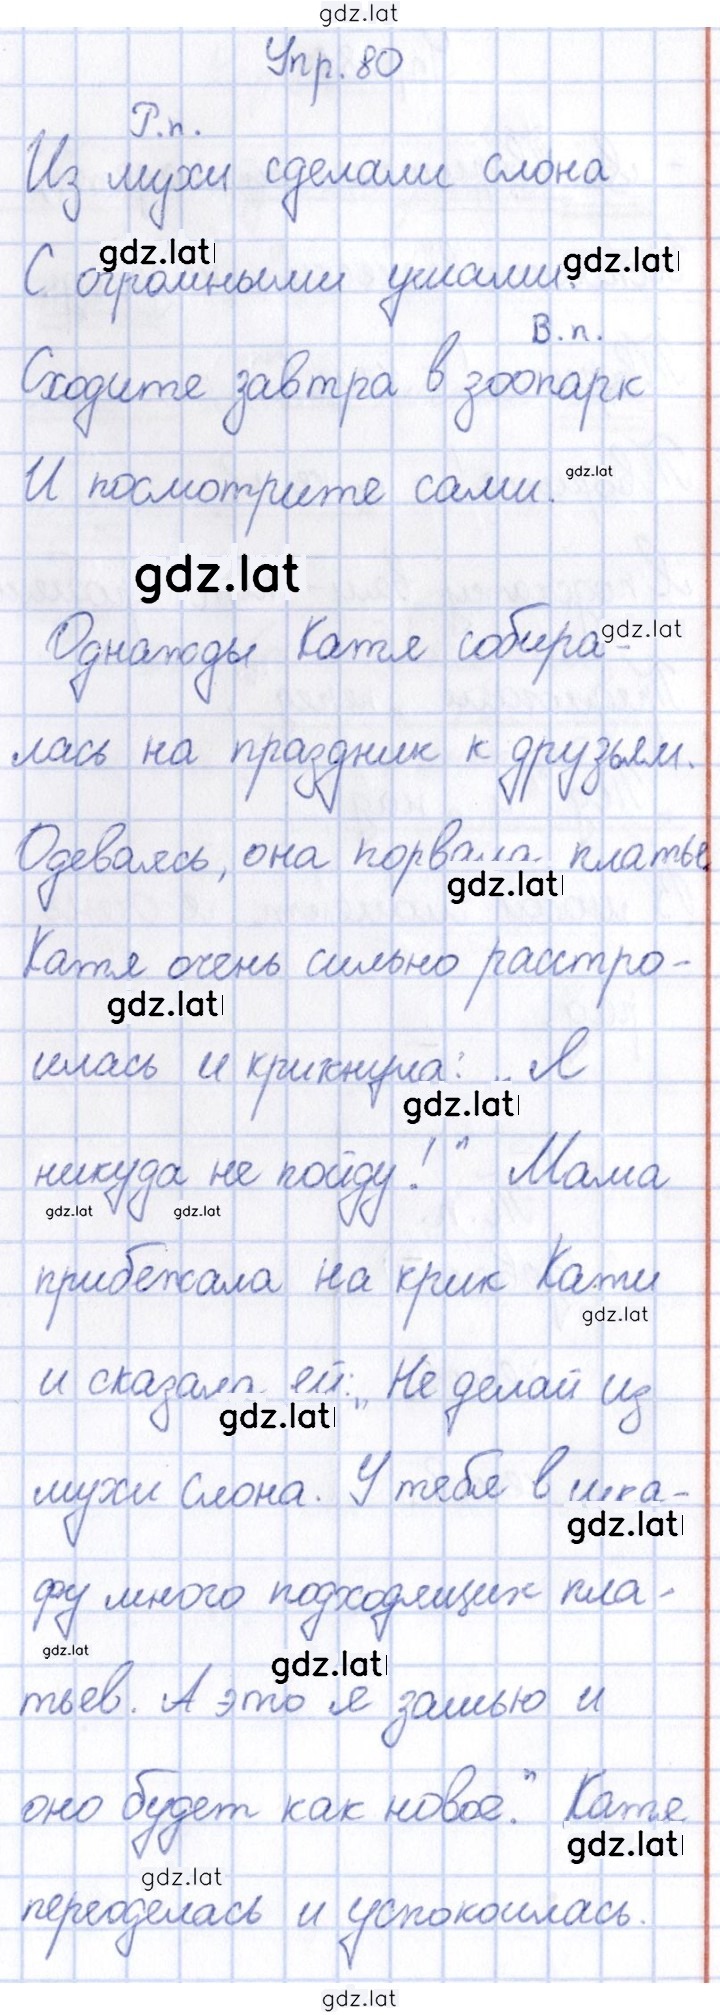 gdz.lat
Упр. 80
Р.п.
Из мухи сделали слона
gdz.lat gdz.lat
С огромными ушами.
В.п.
Сходите завтра в зоопарк
И посмотрите сами. gdz.lat
gdz.lat
Однажды Катя собира- gdz.lat
лась на праздник к друзьям.
Одеваясь, она порвала платье.
gdz.lat
Катя очень сильно расстро-
gdz.lat
илась и крикнула: „Я
gdz.lat
никуда не пойду!" Мама
gdz.lat gdz.lat
прибежала на крик Кати
gdz.lat
и сказала ей: „Не делай из
gdz.lat
мухи слона. У тебя в шка-
gdz.lat
фу много подходящих пла-
gdz.lat gdz.lat
тьев. А это я зашью и
оно будет как новое." Катя
gdz.lat
gdz.lat
переоделась и успокоилась.
gdz.lat